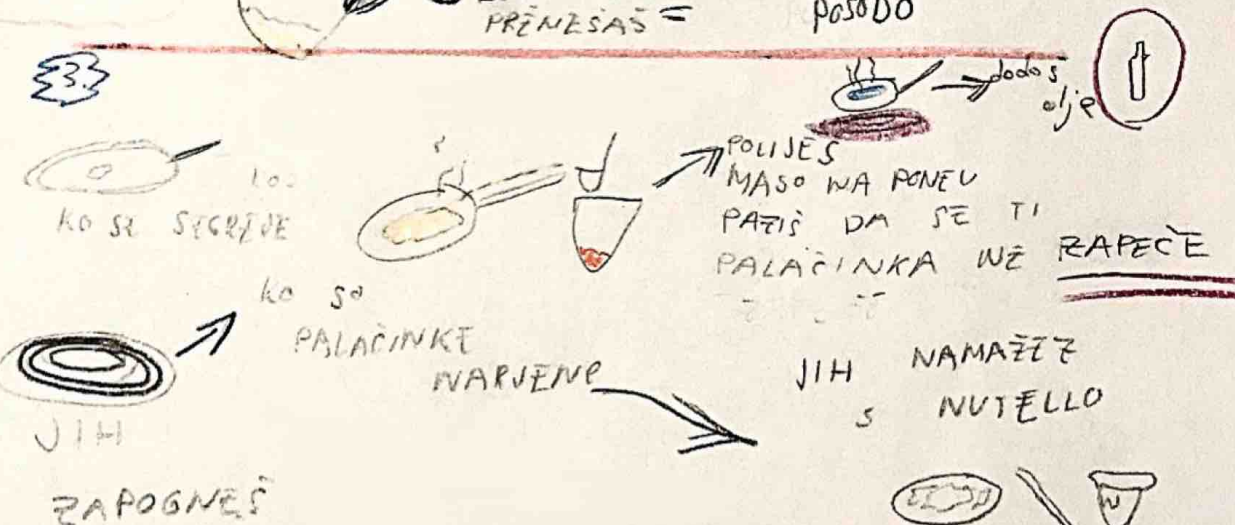 PRENEŠAŠ =
POSODO
3.
dodaš
olje
KO SE SEGREJE
POLIJEŠ
MASO NA PONEV
PAZIŠ DA SE TI
PALAČINKA NE ZAPEČE
KO SO
PALAČINKE
NARJENE
JIH NAMAŽEŽ
S NUTELLO
N
JIH
ZAPOGNEŠ